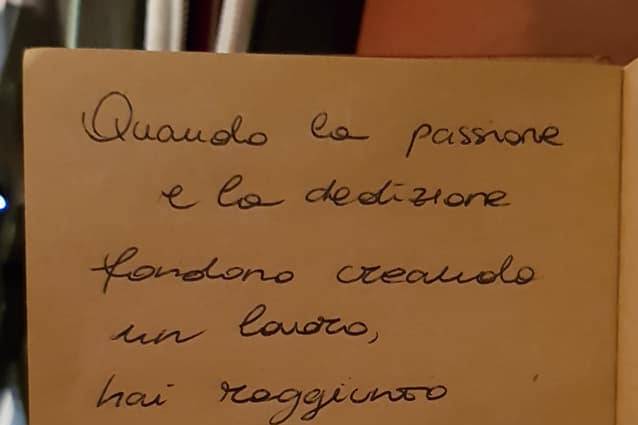 Quando la passione
e la dedizione
fondono creando
un lavoro,
hai raggiunto